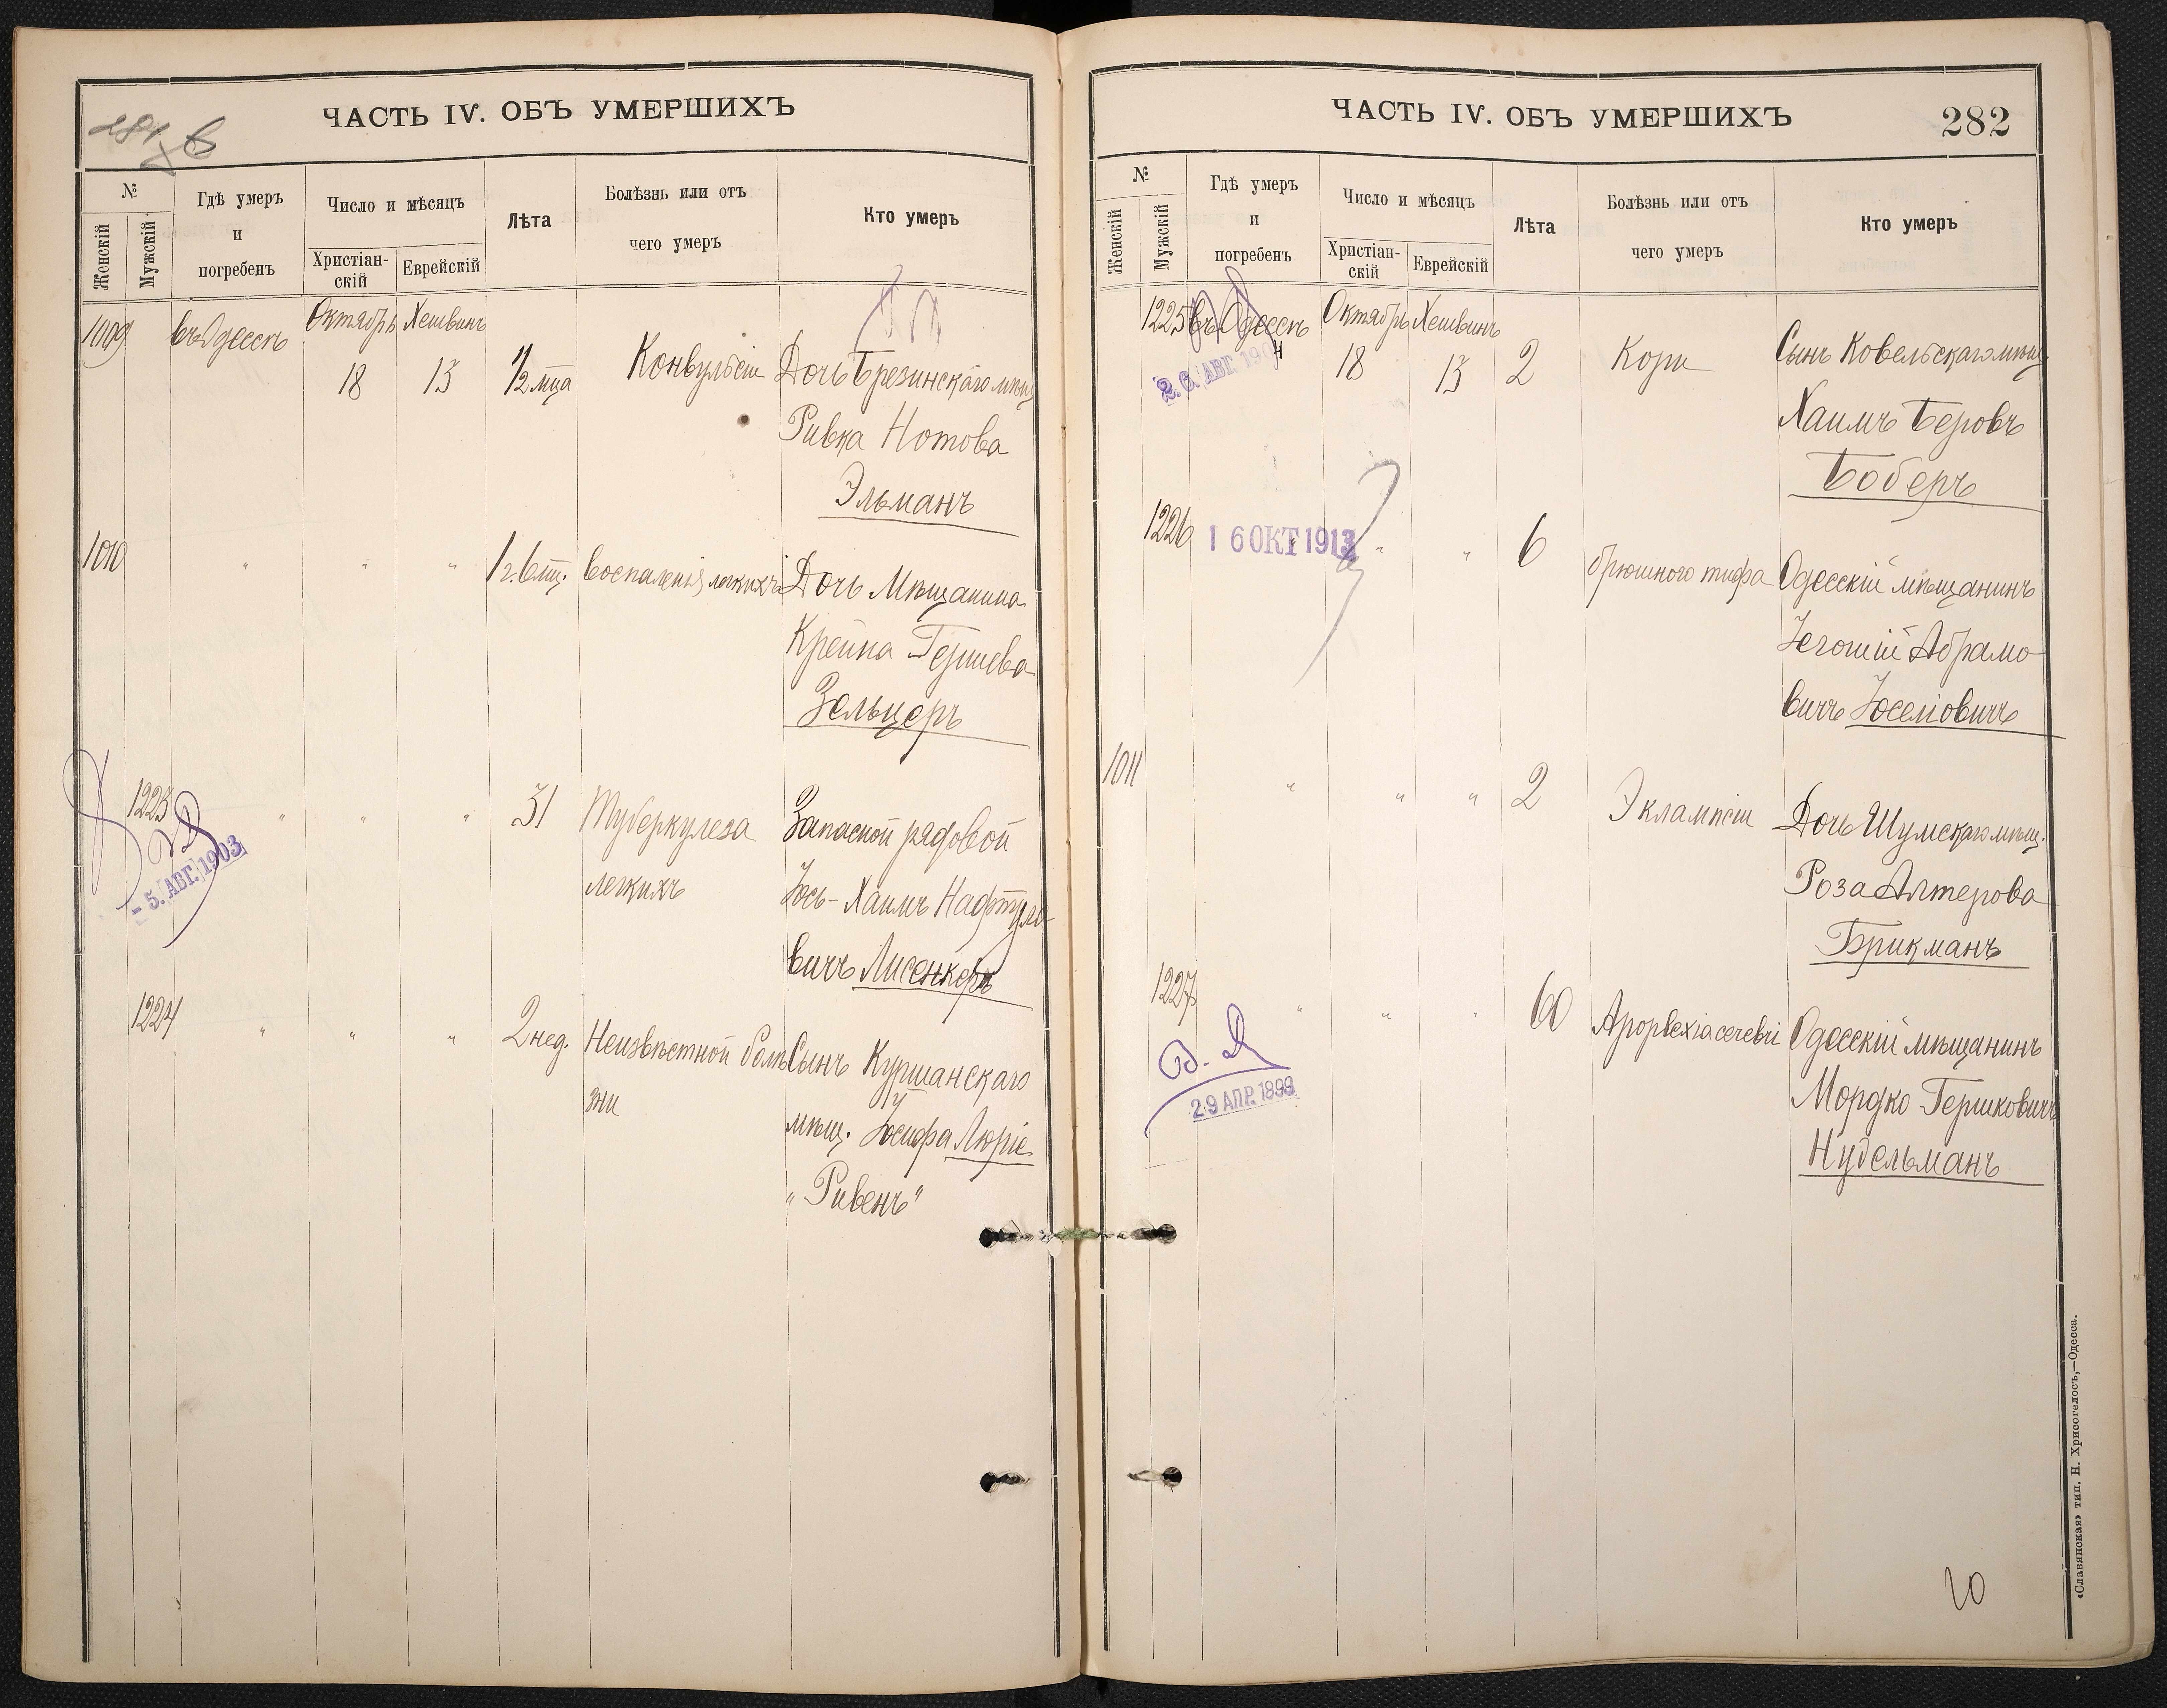 ЧАСТЬ IV. ОБЪ УМЕРШИХЪ
№
Женскій
Мужскій
Гдѣ умеръ
и
погребенъ
Число и мѣсяцъ
Христіан-
скій
Еврейскій
Лѣта
Болѣзнь или отъ
чего умеръ
Кто умеръ
1009 въ Одессѣ Октябрь Хешвинъ
18 13 1/2 мца Конвульсіи Дочь Брезинскаго мѣщ
Ривка Нотова
Эльманъ
1010 " " " 1 г. 6 мц. Воспаленія легкихъ Дочь Мѣщанина
Крейна Гершева
Зельцеръ
1223 " " " 31 Туберкулеза Запасной рядовой
легкихъ Іось-Хаимъ Нафтула-
вичъ Лисенкеръ
- 5. АВГ. 1903
1224 " " " 2 нед. Неизвѣстной болѣ Сынъ Куршанскаго
зни мѣщ. Іосифа Люріе
"Ривенъ"
ЧАСТЬ IV. ОБЪ УМЕРШИХЪ
282
№
Женскій
Мужскій
Гдѣ умеръ
и
погребенъ
Число и мѣсяцъ
Христіан-
скій
Еврейскій
Лѣта
Болѣзнь или отъ
чего умеръ
Кто умеръ
1225 въ Одессѣ Октябрь Хешвинъ
18 13 2 Кори Сынъ Ковельскаго мѣщ.
Хаимъ Беровъ
Боберъ
2. 6. АВГ. 1904
1226 " " " 6 брюшного тифа Одесскій мѣщанинъ
Абрамо-
вичъ Іоселіовичъ
1 6 ОКТ 1913
1011 " " " 2 Эклампсіи Дочь Шумскаго мѣщ.
Роза Алтерова
Брикманъ
1227 " " " 60 Apoplexia cerebri Одесскій мѣщанинъ
Мордко Гершковичъ
Нудельманъ
29 АПР. 1899
20
«Славянская» тип. Н. Хрисогелосъ,—Одесса.